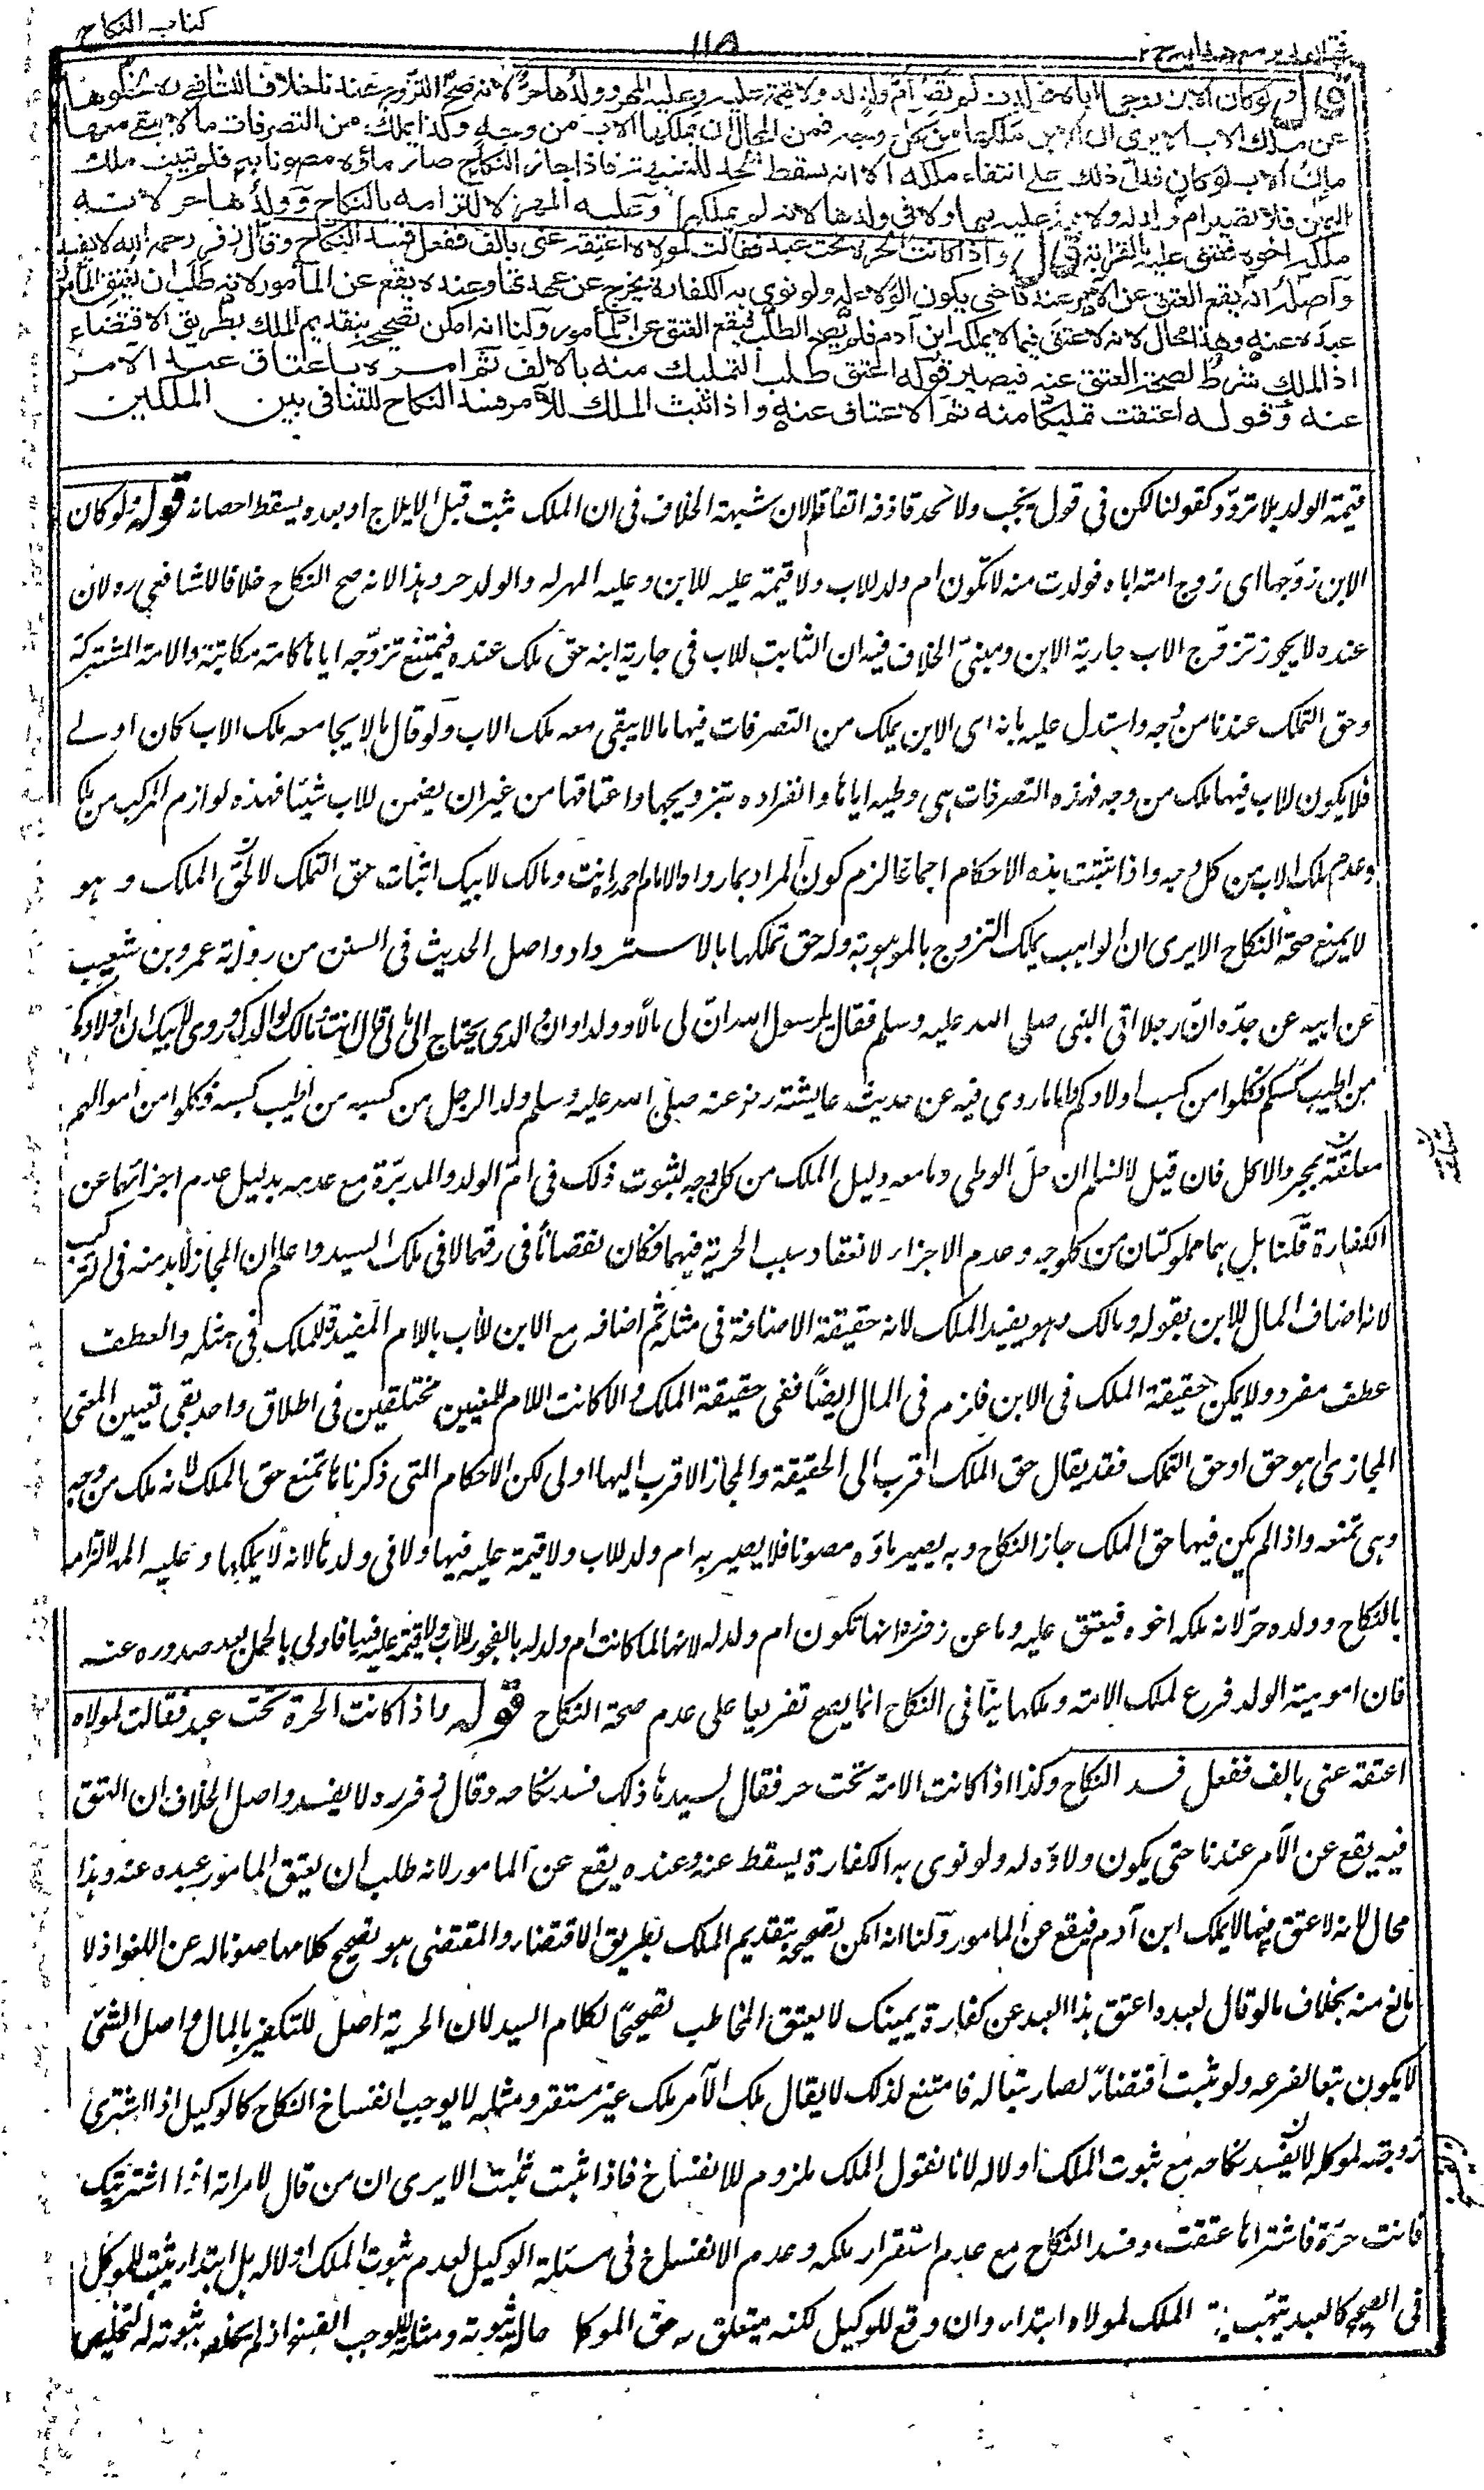 كتاب النكاح
١١٥
فتح القدير مع هدايه ج ٢
قال ولو كان الابن زوجها اباه فولدت لم تصر ام ولد له ولا قيمة عليه وعليه المهر وولدها حر لانه صح التزوج عندنا خلافا للشافعي رح لخلوها
عن ملك الاب الا يرى ان الابن ملكها من كل وجه فمن المحال ان يملكها الاب من وجه وكذا يملك من التصرفات ما لا يبقى معها
ملك الاب لو كان فدل ذلك على انتفاء ملكه الا انه يسقط الحد للشبهة فاذا جاز النكاح صار ماؤه مصونا به فلم يثبت ملك
اليمين فلا تصير ام ولد له ولا قيمة عليه فيها ولا في ولدها لانه لم يملكها وعليه المهر لالتزامه بالنكاح وولدها حر لانه
ملكه اخوه فعتق عليه بالقرابة قال واذا كانت الحرة تحت عبد فقالت لمولاه اعتقه عني بالف ففعل فسد النكاح وقال زفر رحمه الله لا يفسد
واصله انه يقع العتق عن الآمر عندنا حتى يكون الولاء له ولو نوى به الكفارة يخرج عن عهدتها وعنده يقع عن المأمور لانه طلب ان يعتق المأمور
عبده عنه وهذا محال لانه لا عتق فيما لا يملكه ابن آدم فلم يصح الطلب فيقع العتق عن المأمور ولنا انه امكن تصحيحه بتقديم الملك بطريق الاقتضاء
اذ الملك شرط لصحة العتق عنه فيصير قوله اعتق طلب التمليك منه بالالف ثم امره باعتاق عبد الآمر
عنه وقوله اعتقت تمليكا منه ثم الاعتاق عنه واذا ثبت الملك للآمر فسد النكاح للتنافي بين الملكين
قيمة الولد بلا تردد كقولنا لكن في قول يجب ولا نحد قاذفه اتفاقا لان شبهة الخلاف في ان الملك يثبت قبل الايلاج او بعده يسقط احصانه قوله ولو كان
الابن زوجها اى زوج امته اباه فولدت منه لا تكون ام ولد للاب ولا قيمة عليه للابن وعليه المهر له والولد حر وهذا لانه صح النكاح خلافا للشافعي ره لان
عنده لا يجوز تزوج الاب جارية الابن ومبنى الخلاف فيه ان الثابت للاب في جارية ابنه حق ملك عنده فيمتنع تزوجه اياها كامة مكاتبة والامة المشتركة
وحق التملك عندنا من وجه واستدل عليه بانه اى الابن يملك من التصرفات فيها ما لا يبقى معه ملك الاب ولو قال ما لا يجامعه ملك الاب كان اولے
فلا يكون للاب فيها ملك من وجه فهذه التصرفات هي وطيه اياها وانفراده بتزويجها واعتاقها من غير ان يضمن للاب شيئا فهذه لوازم المركب من ملك
وعدم ملك الاب من كل وجه واذا ثبتت هذه الاحكام اجماعا لزم كون المراد بما رواه الامام احمد انت ومالك لابيك اثبات حق التملك لا حق الملك وهو
لا يمنع صحة النكاح الا يرى ان الواهب يملك التزوج بالموهوبة وله حق تملكها بالاسترداد واصل الحديث في السنن من رواية عمرو بن شعيب
عن ابيه عن جده ان رجلا اتى النبي صلى الله عليه وسلم فقال يا رسول الله ان لى مالا وولدا وان والدى يحتاج الى مالى قال انت ومالك لوالدك وروى لابيك ان اولادكم
من اطيب كسبكم فكلوا من كسب اولادكم واما ما روى فيه عن حديث عايشة رض عنه صلى الله عليه وسلم ولد الرجل من كسبه من اطيب كسبه فكلوا من اموالهم
معلقة بجر والاكل فان قيل لا نسلم ان حل الوطى وما معه دليل الملك من كل وجه لثبوت ذلك في ام الولد والمدبرة مع عدمه بدليل عدم اجزائها عن
الكفارة قلنا بل هما مملوكتان من كل وجه وعدم الاجزاء لانعقاد سبب الحرية فيهما فكان نقصانا في رقهما لا في ملك السيد واعلم ان المجاز لابد منه في التركيب
لانه اضاف المال للابن بقوله ومالك وهو يفيد الملك لانه حقيقة الاضافة في مثله ثم اضافه مع الابن للاب باللام المفيدة للملك في مثله والعطف
عطف مفرد ولا يمكن حقيقة الملك في الابن فلزم في المال ايضا نفى حقيقة الملك والا كانت اللام لمعنيين مختلفين في اطلاق واحد بقي تعيين المعنى
المجازى اهو حق او حق التملك فقد يقال حق الملك اقرب الى الحقيقة والمجاز الاقرب اليها اولى لكن الاحكام التي ذكرناها تمنع حق الملك لانه ملك من وجه
وهى تمنعه واذا لم يكن فيها حق الملك جاز النكاح وبه يصير ماؤه مصونا فلا يصير به ام ولد للاب ولا قيمة عليه فيها ولا في ولدها لانه لا يملكها وعليه المهر لالتزامه
بالنكاح وولده حر لانه ملكه اخوه فيعتق عليه وما عن زفره انها تكون ام ولد له لانها لما كانت ام ولد له بالفجور للاب ولا قيمة عليه فيها فاولى بالحل بعد صدوره عنه
فان امومية الولد فرع لملك الامة وملكها ينافي النكاح انما يصح تفريعا على عدم صحة النكاح قوله واذا كانت الحرة تحت عبد فقالت لمولاه
اعتقه عنى بالف ففعل فسد النكاح وكذا اذا كانت الامة تحت حر فقال لسيدها ذلك فسد نكاحه وقال زفر ره لا يفسد واصل الخلاف ان العتق
فيه يقع عن الآمر عندنا حتى يكون ولاؤه له ولو نوى به الكفارة يسقط عنه وعنده يقع عن المامور لانه طلب ان يعتق المامور عبده عنه وهذا
محال لانه لا عتق فيما لا يملك ابن آدم فيقع عن المامور ولنا انه امكن تصحيحه بتقديم الملك بطريق الاقتضاء والمقتضى هو تصحيح كلامهما صونا له عن اللغو اذ لا
مانع منه بخلاف ما لو قال لعبده اعتق هذا العبد عن كفارة يمينك لا يعتق المخاطب تصحيحا لكلام السيد لان الحرية اصل للتكفير بالمال واصل الشئ
لا يكون تبعا لفرعه ولو ثبت اقتضاء لصار تبعا له فامتنع لذلك لا يقال ملك الآمر ملك غير مستقر ومثله لا يوجب انفساخ النكاح كالوكيل اذا اشترى
زوجته لموكله لا يفسد نكاحه مع ثبوت الملك اولا له لانا نقول الملك ملزوم للانفساخ فاذا ثبت ثبت الا يرى ان من قال لامراته اذا اشتريتك
فانت حرة فاشتراها عتقت وفسد النكاح مع عدم استقرار ملكه وعدم الانفساخ في مسئلة الوكيل لعدم ثبوت الملك اولا له بل ابتداء يثبت للموكل
في الصحيح كالعبد يتهب يثبت الملك لمولاه ابتداء وان وقع للوكيل لكنه متعلق به حق الموكل حال ثبوته ومثله لا يوجب الفسخ اذ لم يخلص ثبوته له لتخليص